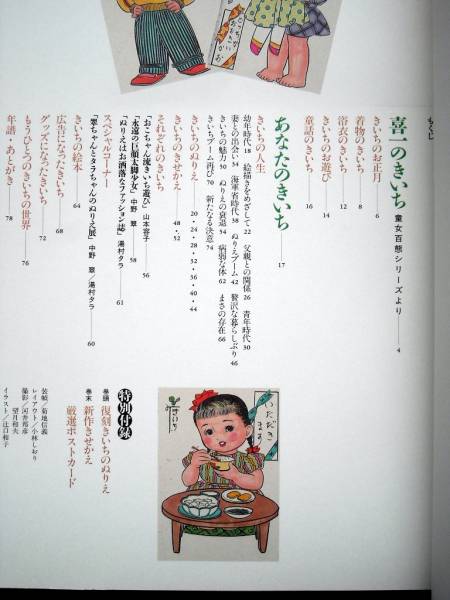 もくじ
喜一のきいち 童女百態シリーズより——4
きいちのお正月——6
着物のきいち——8
浴衣のきいち——12
きいちのお遊び——14
童話のきいち——16
あなたのきいち——17
きいちの人生
幼年時代 18 絵描きをめざして 22 父親との関係 26 青年時代 30
妻との出会い 34 海軍省時代 38 ぬりえブーム 42 贅沢な暮らしぶり 46
きいちの魅力 50 ぬりえの衰退 54 病弱な体 62 まさの存在 66
きいちブーム再び 70 新たなる決意 74
きいちのぬりえ——20・24・28・32・36・40・44
きいちのきせかえ——48・52
それぞれのきいち
「おこちゃん流きいち遊び」山本容子——56
「永遠の巨顔大脚少女」中野 翠——58
「ぬりえはお洒落なファッション誌」湯村タラ——61
スペシャルコーナー
「翠ちゃんとタラちゃんのぬりえ展」中野 翠/湯村タラ——60
きいちの絵本——64
広告になったきいち——68
グッズになったきいち——72
もうひとつのきいちの世界——76
年譜・あとがき——78
特別付録
巻頭 復刻きいちのぬりえ
巻末 新作きせかえ
厳選ポストカード
装幀/菊地信義
レイアウト/小林しおり
撮影/河井邦彦
望月和夫
イラスト/辻口和子
いただきます
きいち